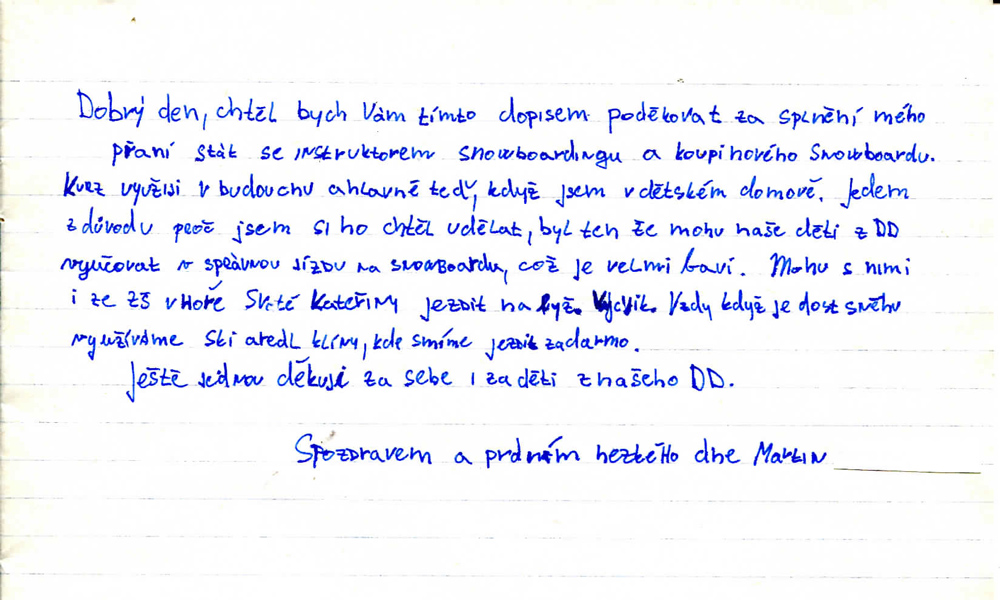 Dobrý den, chtěl bych Vám tímto dopisem poděkovat za splnění mého
přaní stát se instruktorem snowboardingu a koupi nového Snowboardu.
Kurz využiji v budouchu a hlavně tedy, když jsem v dětském domově. Jedem
z důvodu proč jsem si ho chtěl udělat, byl ten že mohu naše děti z DD
vyučovat v správnou jízdu na snowboardu, což je velmi baví. Mohu s nimi
i ze ZŠ v Hoře Svaté Kateřiny jezdit na lyž. Výcvik. Vzdy když je dost sněhu
využíváme Ski areál klíny, kde smíme jezdit zadarmo.
Ještě jednou děkuji za sebe i za děti z našeho DD.
S pozdravem a hezkého dne Martin